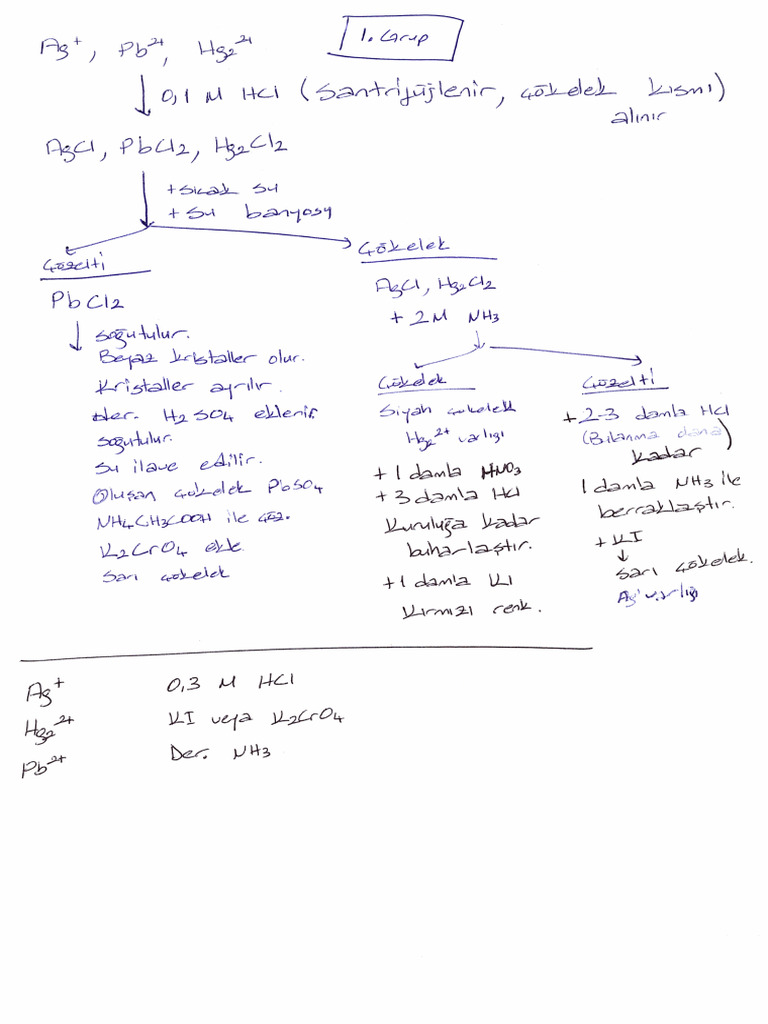 1. Grup
Ag+, Pb2+, Hg2 2+
0,1 M HCl (Santrifüjlenir, çökelek kısmı)
alınır
AgCl, PbCl2, Hg2Cl2
+ sıcak su
+ su banyosu
Çözelti
PbCl2
soğutulur.
Beyaz kristaller olur.
Kristaller ayrılır.
Der. H2SO4 eklenir.
soğutulur.
Su ilave edilir.
Oluşan çökelek PbSO4
NH4CH3COOH ile çöz.
K2CrO4 ekle.
Sarı çökelek
Çökelek
AgCl, Hg2Cl2
+ 2M NH3
Çökelek
Siyah çökelek
Hg2 2+ varlığı
+ 1 damla HNO3
+ 3 damla HCl
Kuruluğa kadar
buharlaştır.
+ 1 damla KI
Kırmızı renk.
Çözelti
+ 2-3 damla HCl
(Bulanma dana)
kadar
1 damla NH3 ile
berraklaştır.
+ KI
Sarı çökelek.
Ag+ varlığı
Ag+ 0,3 M HCl
Hg2 2+ KI veya K2CrO4
Pb2+ Der. NH3